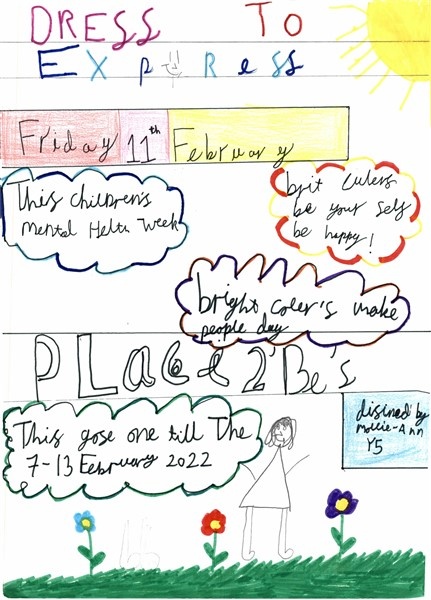 DRESS TO
Express
Friday 11th February
This children's
mental Helth Week
brit Culers
be your self
be happy!
bright coler's make
people day
PLace2Be's
This gose one till The
7-13 Eebruary 2022
disined by
Mollie-Ann
Y5